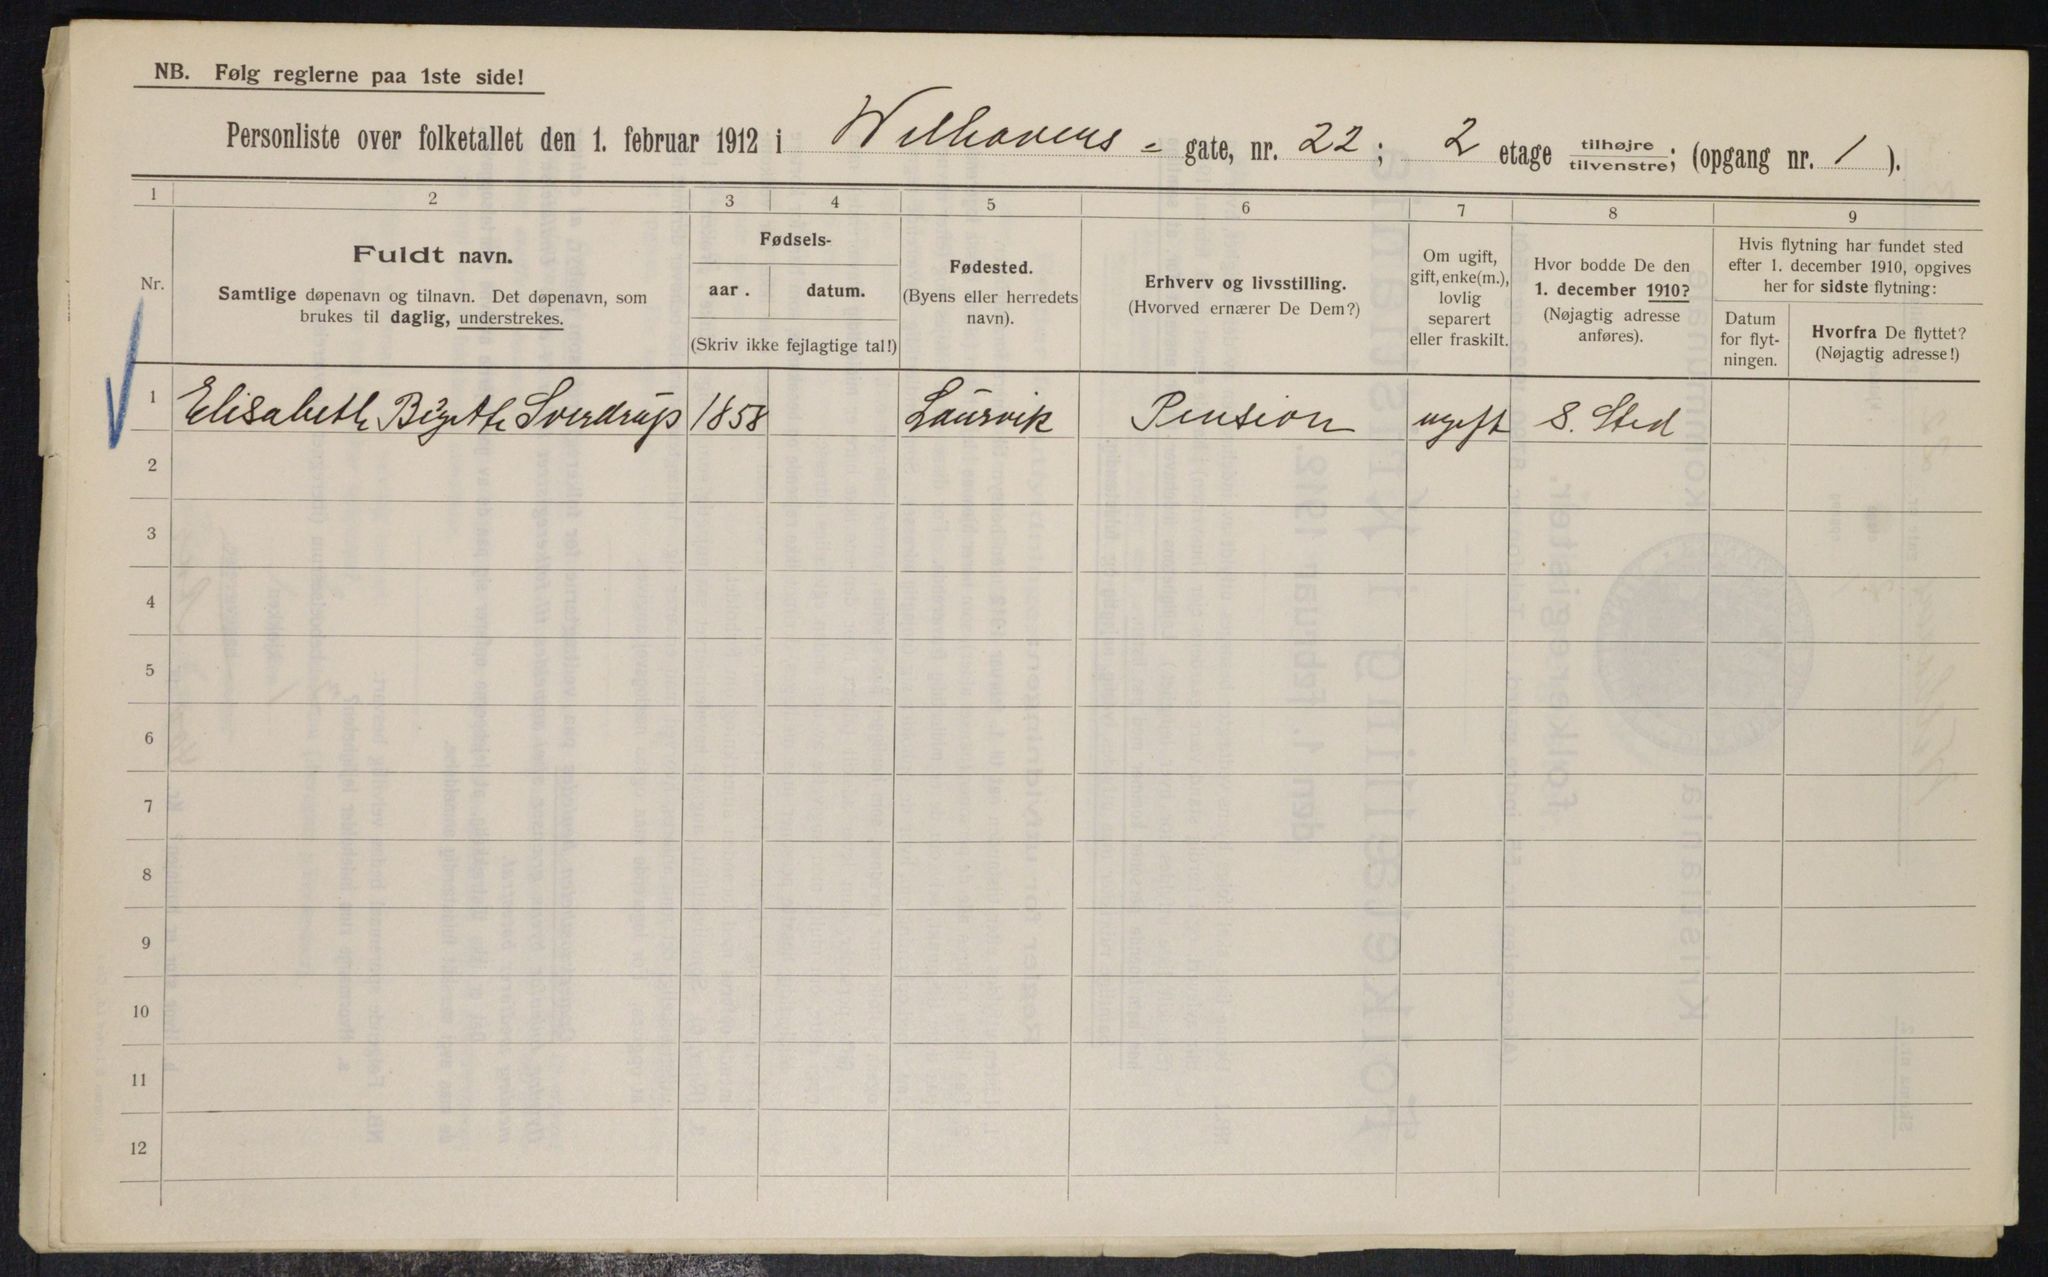 NB. Følg reglerne paa 1ste side!
Personliste over folketallet den 1. februar 1912 i Welhavens - gate, nr. 22; 2 etage tilhøjre tilvenstre; (opgang nr. 1).
1 2 3 4 5 6 7 8 9
Nr.
Fuldt navn.
Samtlige døpenavn og tilnavn. Det døpenavn, som
brukes til daglig, understrekes.
Fødsels-
aar. datum.
(Skriv ikke fejlagtige tal!)
Fødested.
(Byens eller herredets
navn).
Erhverv og livsstilling.
(Hvorved ernærer De Dem?)
Om ugift,
gift, enke(m.),
lovlig
separert
eller fraskilt.
Hvor bodde De den
1. december 1910?
(Nøjagtig adresse
anføres).
Hvis flytning har fundet sted
efter 1. december 1910, opgives
her for sidste flytning:
Datum
for flyt-
ningen.
Hvorfra De flyttet?
(Nøjagtig adresse!)
1 Elisabeth Sverdrup 1858 Laurvik Pension ugift S. Sted
2
3
4
5
6
7
8
9
10
11
12